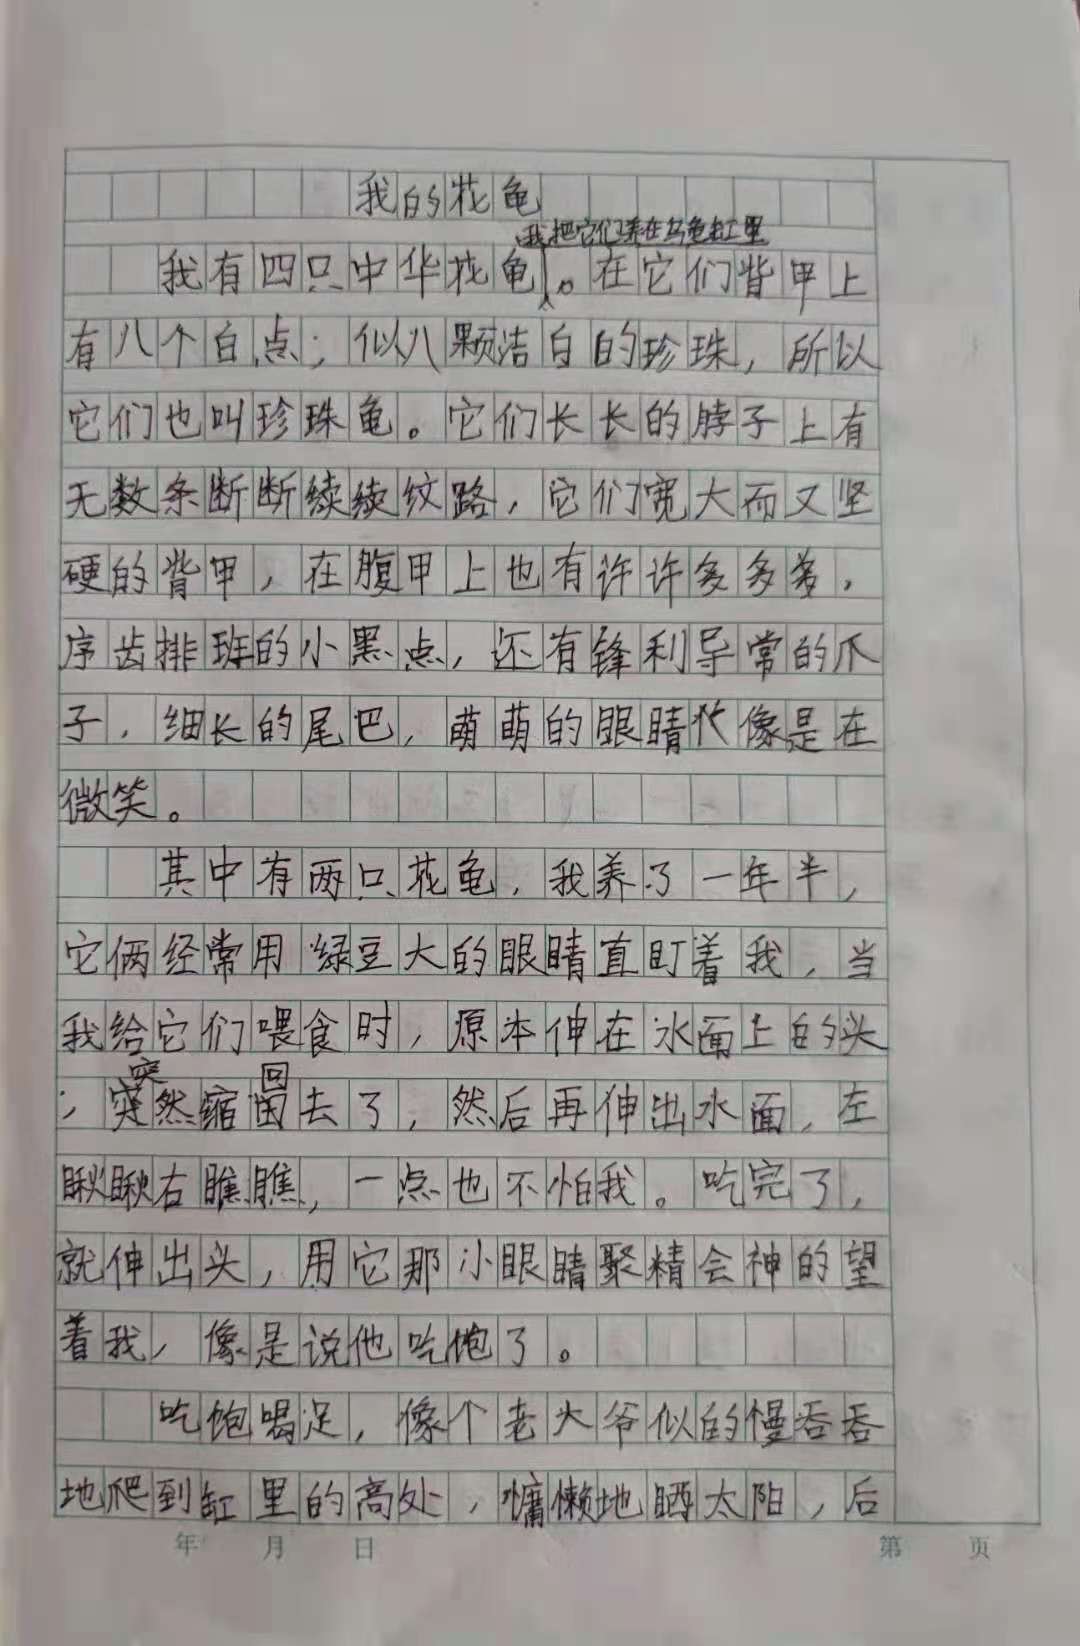 我的花龟
我把它们养在乌龟缸里
我有四只中华花龟。在它们背甲上
有八个白点，似八颗洁白的珍珠，所以
它们也叫珍珠龟。它们长长的脖子上有
无数条断断续续纹路，它们宽大而又坚
硬的背甲，在腹甲上也有许许多多，
序齿排班的小黑点，还有锋利导常的爪
子，细长的尾巴，萌萌的眼睛像是在
微笑。
其中有两只花龟，我养了一年半，
它俩经常用绿豆大的眼睛直盯着我，当
我给它们喂食时，原本伸在水面上的头
突 回
，突然缩回去了，然后再伸出水面，左
瞅瞅右瞧瞧，一点也不怕我。吃完了，
就伸出头，用它那小眼睛聚精会神的望
着我，像是说他吃饱了。
吃饱喝足，像个老大爷似的慢吞吞
地爬到缸里的高处，慵懒地晒太阳，后
年 月 日 第 页